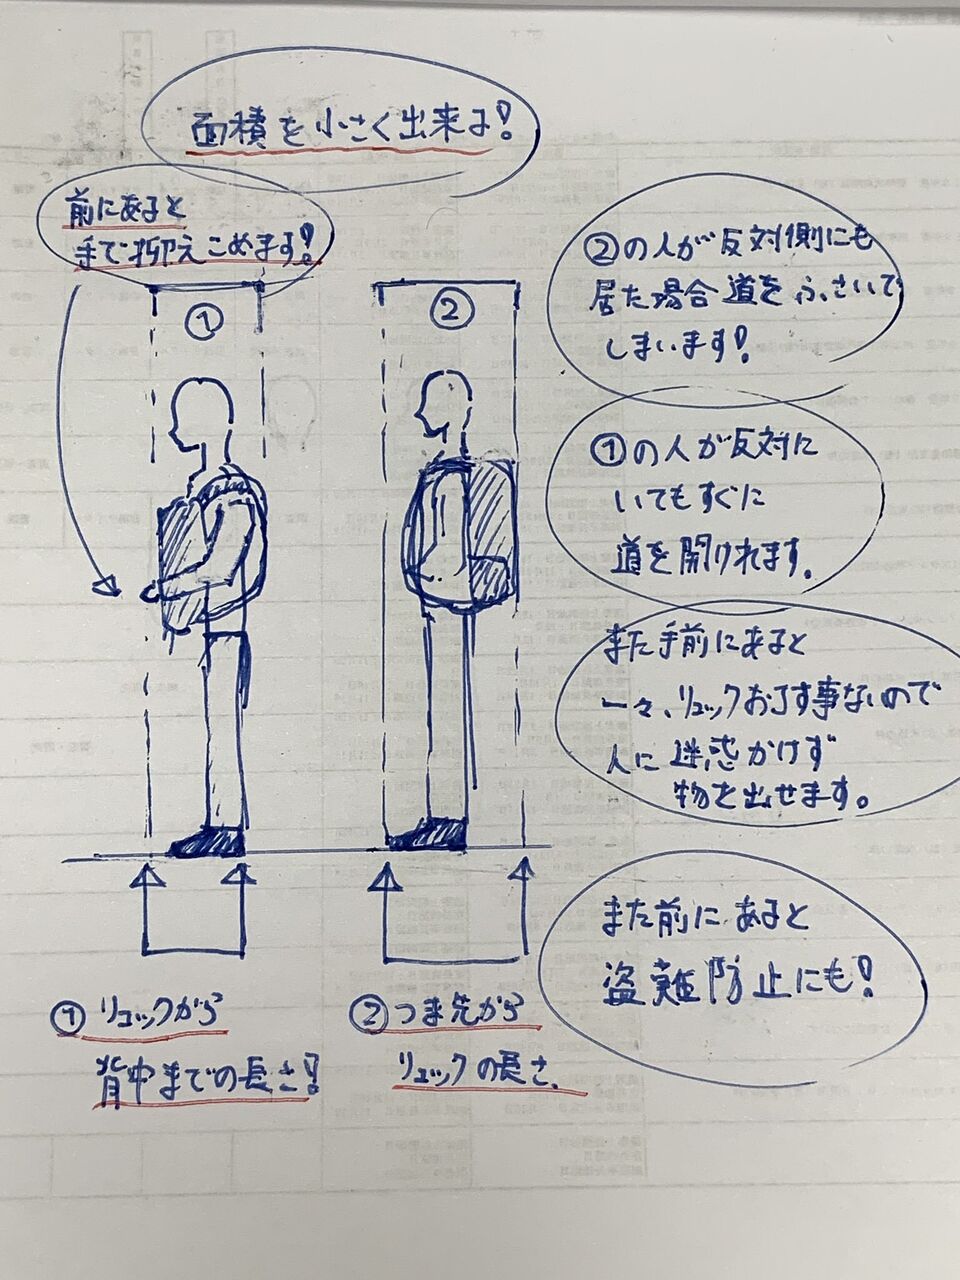 面積を小さく出来る!
前にあると
手で抑えこめます!
①
②
②の人が反対側にも
居た場合道をふさいで
しまいます!
①の人が反対に
いてもすぐに
道を開けれます。
また手前にあると
一々、リュックおろす事ないので
人に迷惑かけず
物を出せます。
また前にあると
盗難防止にも!
①リュックから
背中までの長さ!
②つま先から
リュックの長さ。